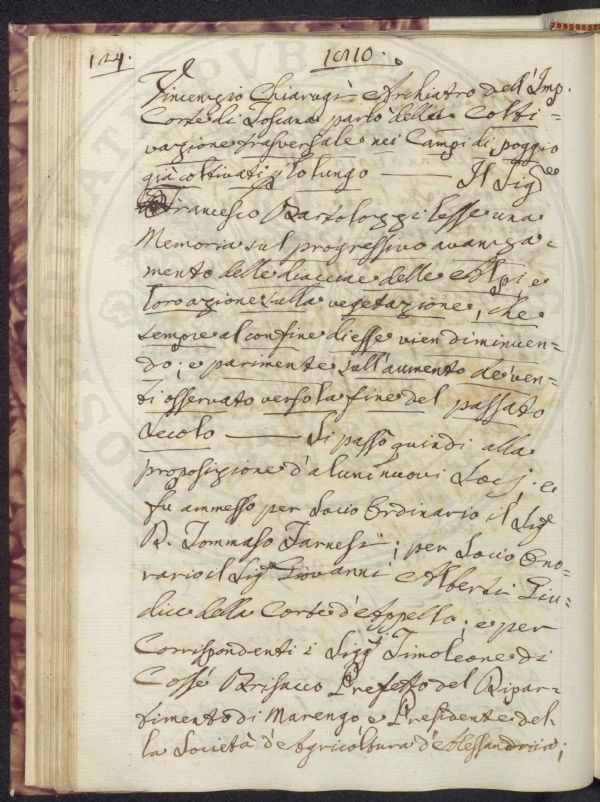 124.
1810.
Vincenzio Chiarugi Archiatro dell'Imp.
Corte di Toscana parlò della Colti=
vazione trasversale nei Campi di poggio
già coltivati p lo lungo —— Il Sigre
Francesco Bartolozzi lesse una
Memoria sul progressivo avanza=
mento delle diacciae delle Alpi e
loro azione sulla vegetazione, che
sempre al confine di esse vien diminuen-
do; e parimente sull'aumento de' ven-
ti osservato verso la fine del passato
Secolo —— Si passò quindi alla
proposizione d'alcuni nuovi Socj, e
fu ammesso per Socio Ordinario il Sigr
D. Tommaso Farnesi; per Socio Ono-
rario il Sigr Giovanni Alberti Giu=
dice della Corte d'Appello; e per
Corrispondenti i Sigg. Timoleone di
Cossé Brisacco Prefetto del Dipar-
timento di Marengo e Presidente del-
la Società d'Agricoltura d'Alessandria;